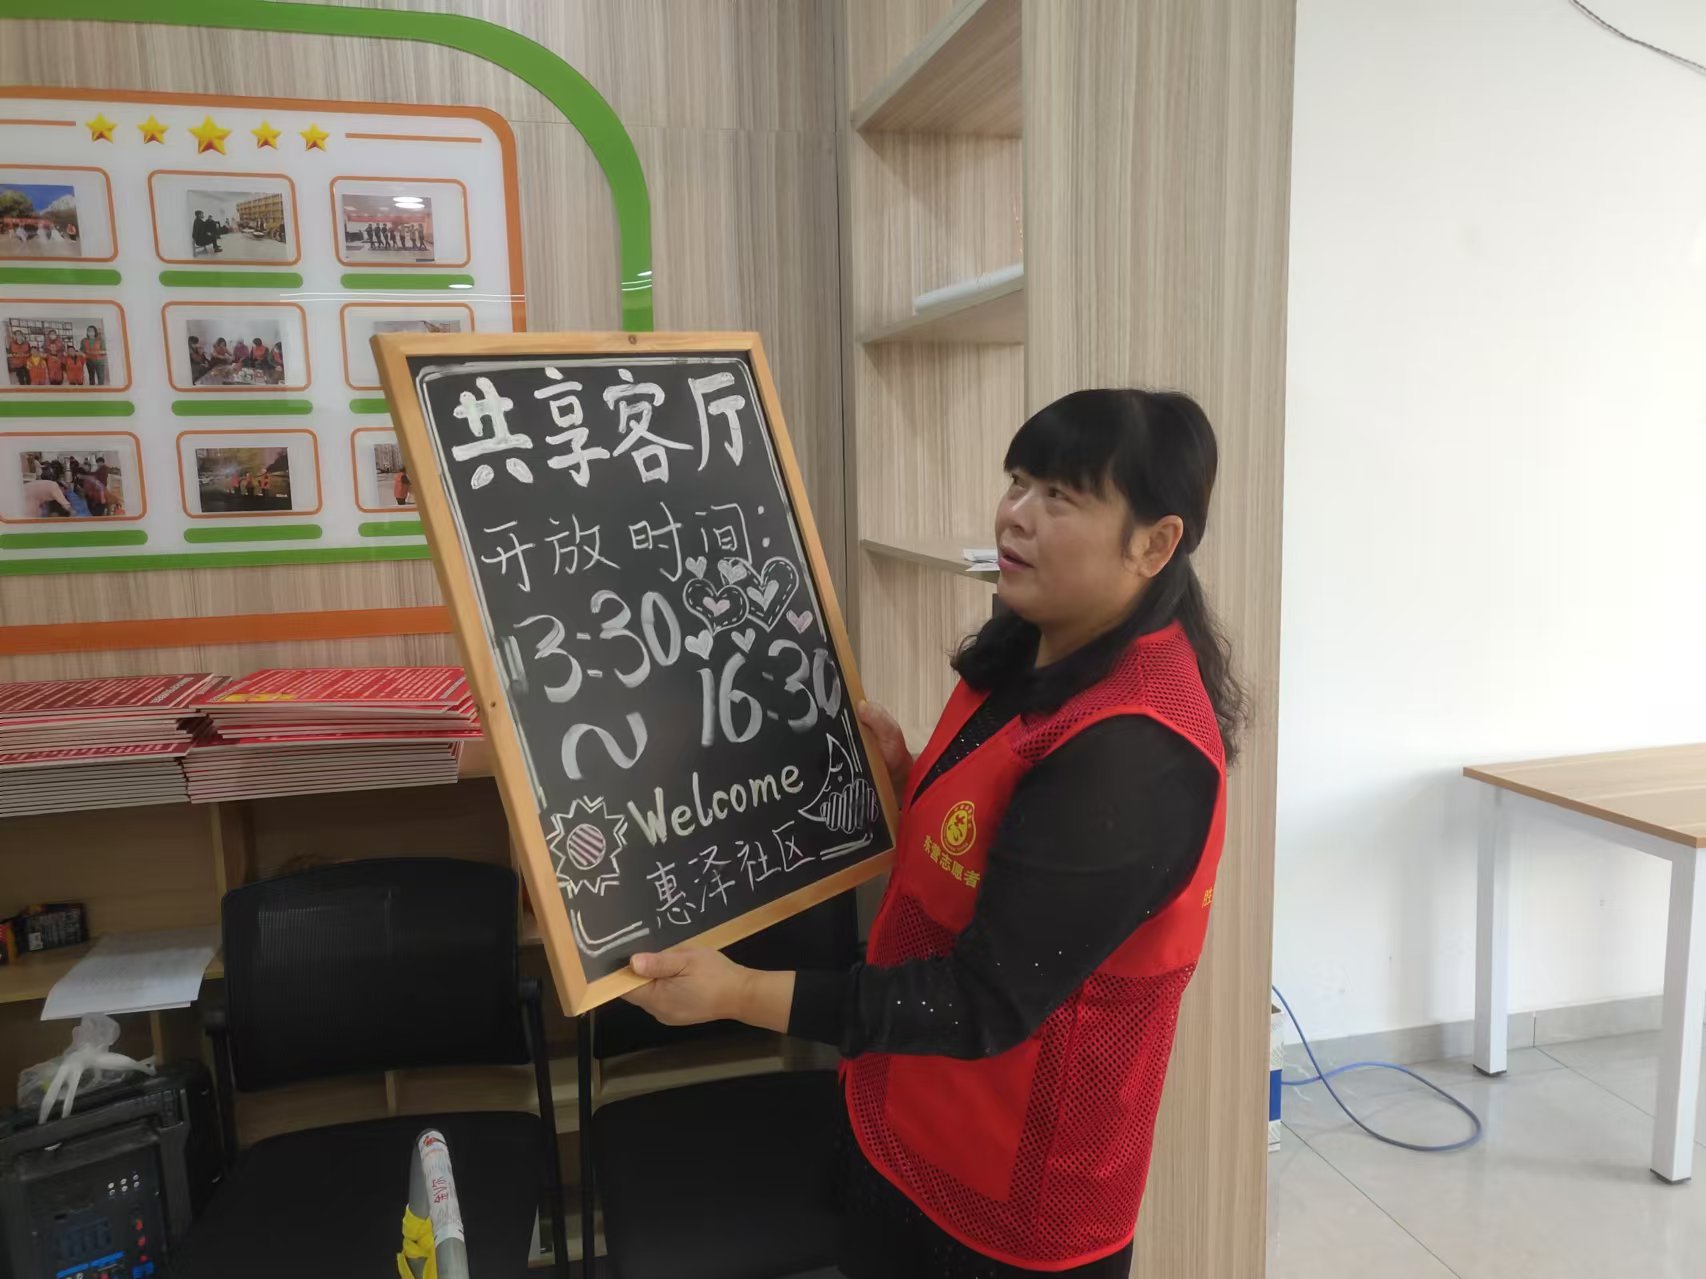 共享客厅
开放时间:
13:30
~ 16:30
Welcome
惠泽社区
东营志愿者
胜